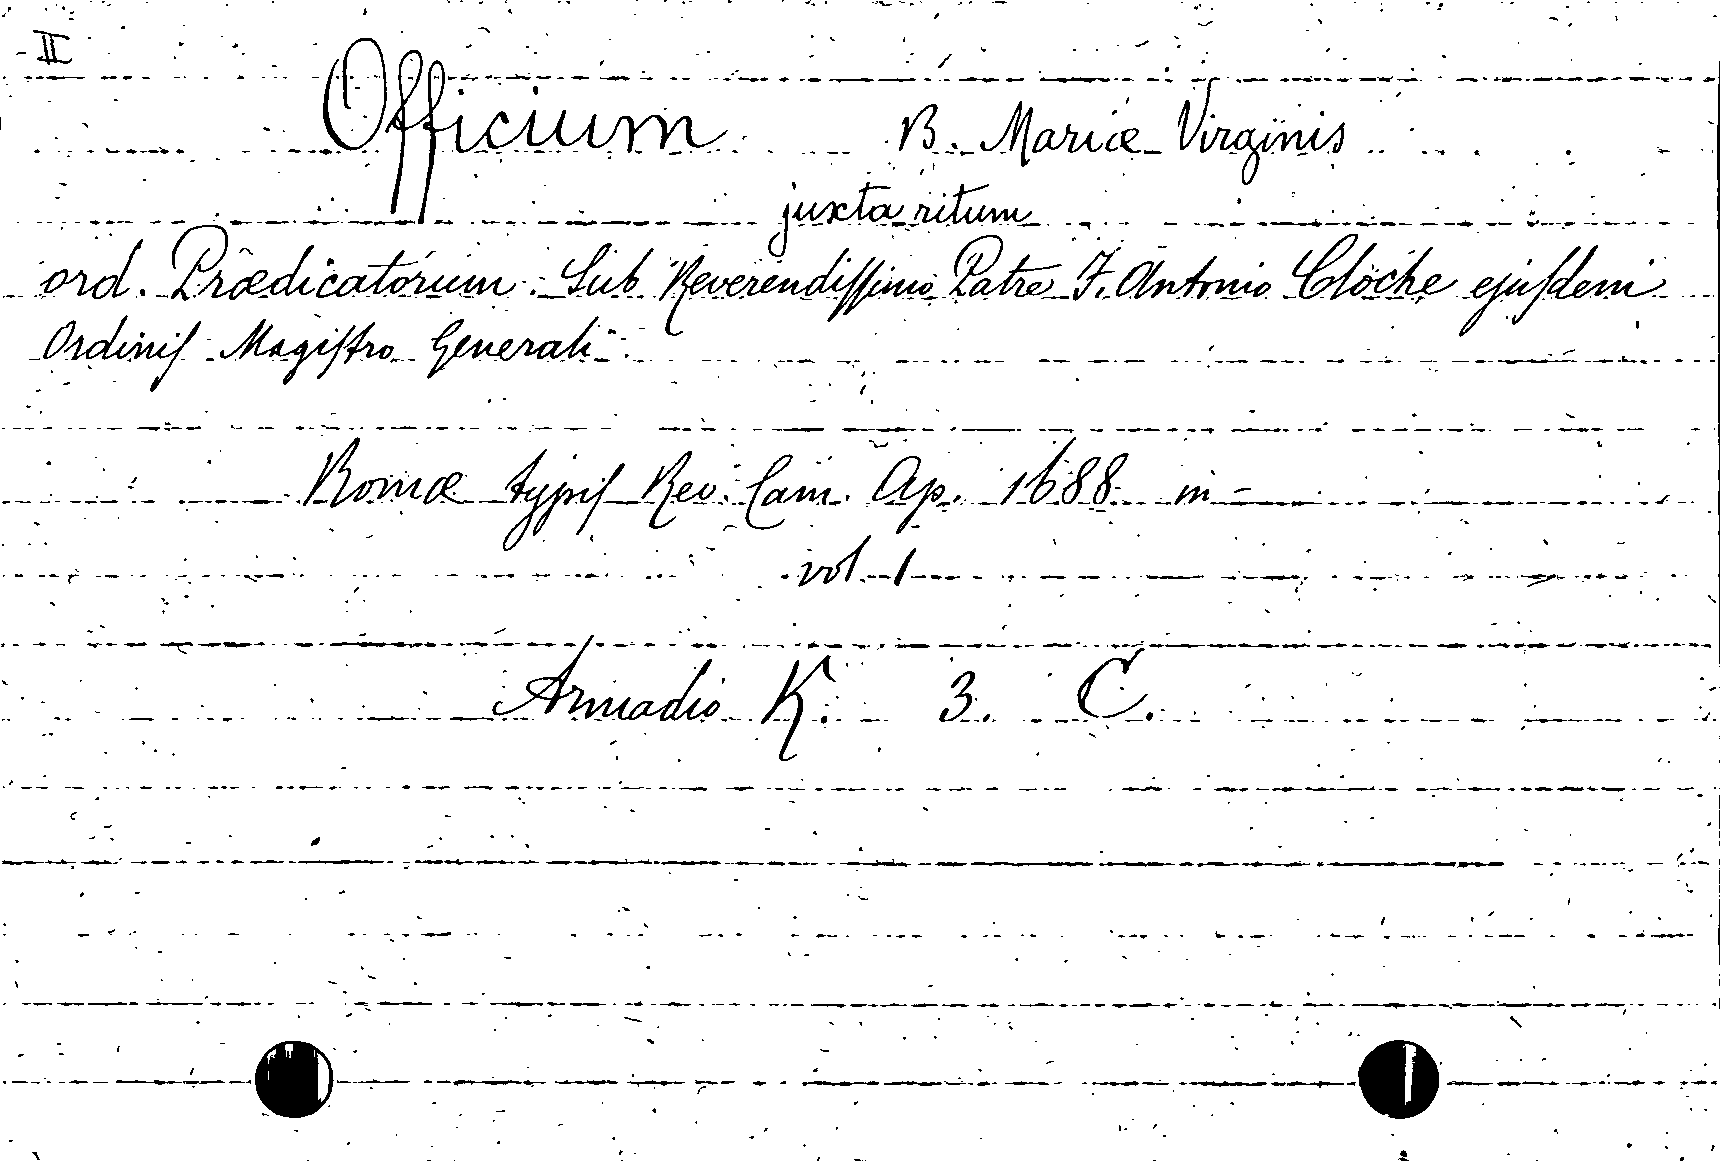 II
Officium B. Mariæ Virginis
juxta ritum
ord. Prædicatorum. Sub Reverendiſſimo Patre F. Antonio Cloche ejuſdem
Ordiniſ Magiſtro Generali
Romæ typiſ Rev. Cam. Ap. 1688 in -
vol. 1
Armadio K. 3. C.